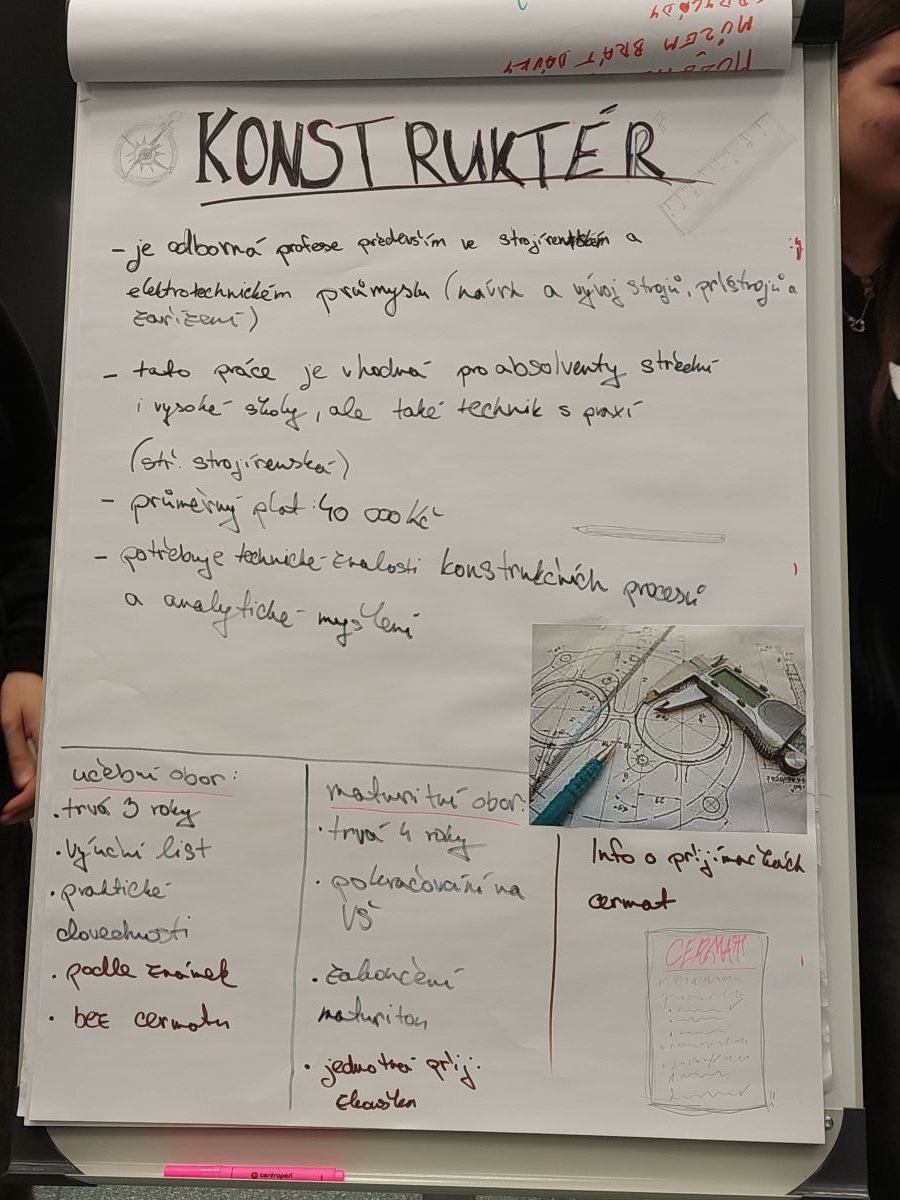 MŮŽEM BRÁT DÁVKY
KONSTRUKTÉR
- je odborná profese především ve strojírenském a
elektrotechnickém průmyslu (návrh a vývoj strojů, přístrojů a
zařízení)
- tato práce je vhodná pro absolventy střední
i vysoké školy, ale také technik s praxí
(stř. strojírenská)
- průměrný plat: 40 000 Kč
- potřebuje technické znalosti konstrukčních procesů
a analytické myšlení
učební obor:
• trvá 3 roky
• výuční list
• praktické
dovednosti
• podle známek
• bez cermatu
maturitní obor:
• trvá 4 roky
• pokračování na
VŠ
• zakončení
maturitou
• jednotná přij.
zkouška
Info o přijímačkách
cermat
CERMAT!
@ centropen